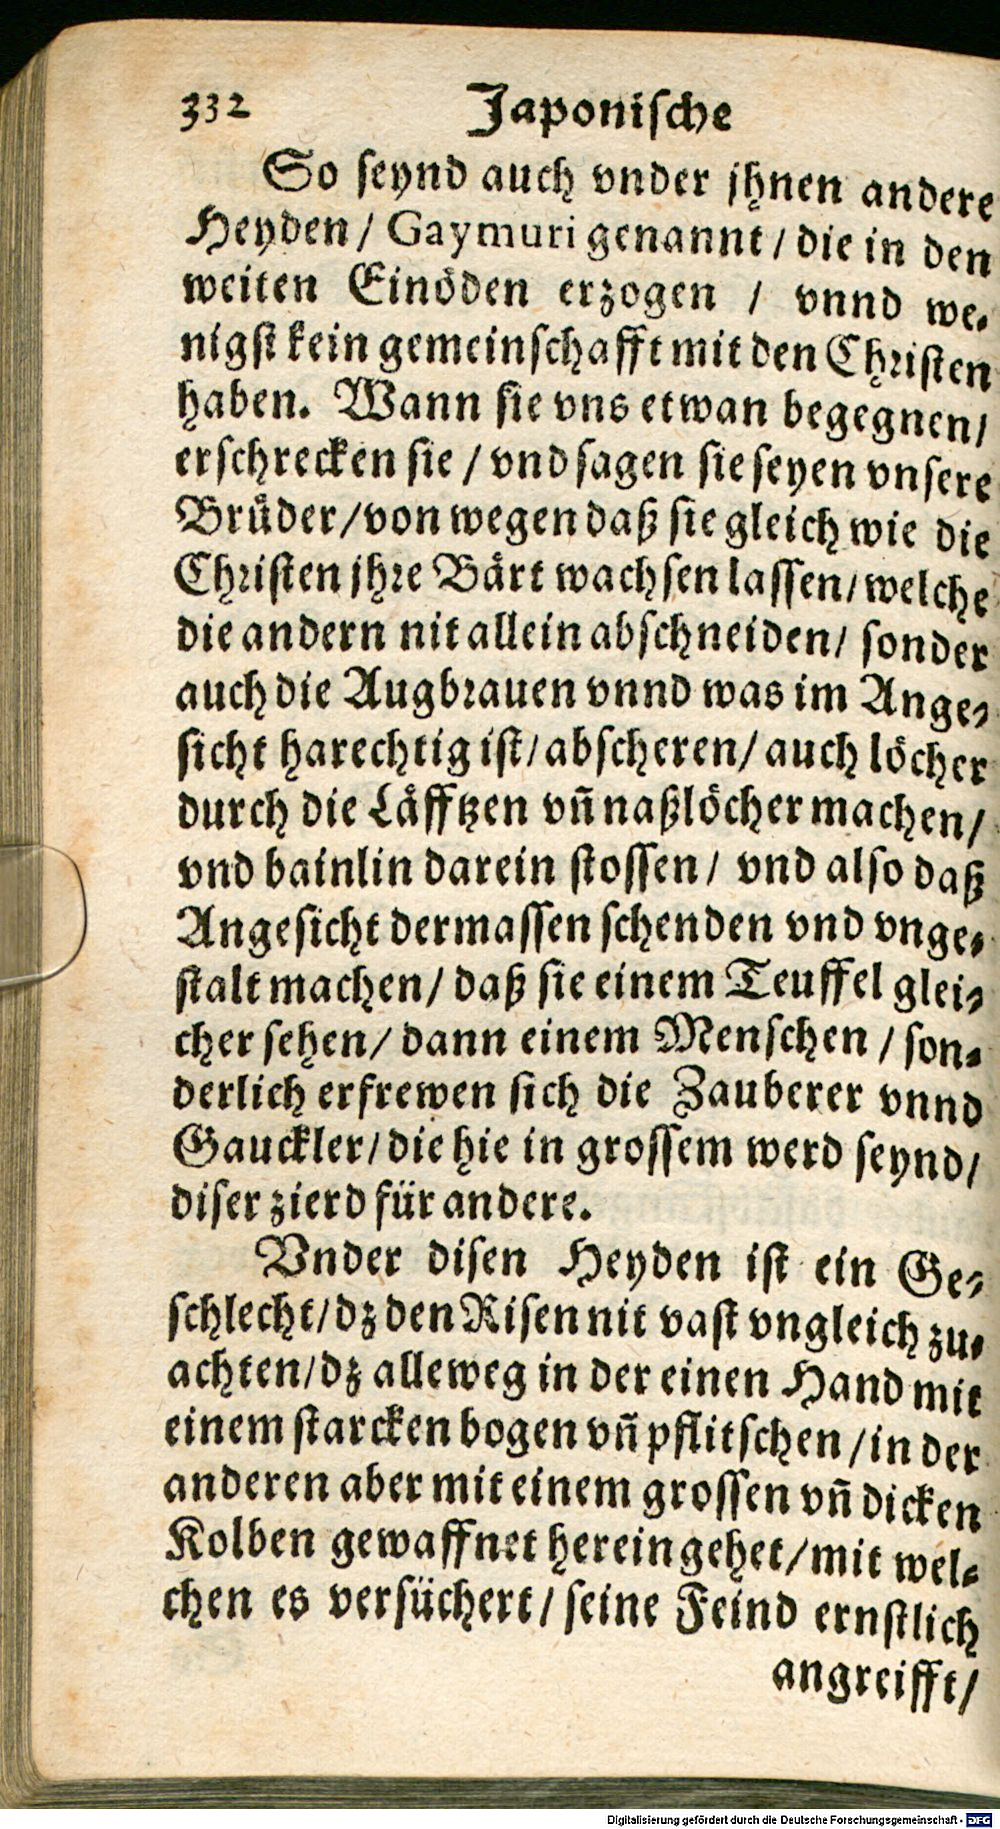 332 Japonische
So seynd auch vnder jhnen andere
Heyden/ Gaymuri genannt/ die in den
weiten Einöden erzogen / vnnd we-
nigst kein gemeinschafft mit den Christen
haben. Wann sie vns etwan begegnen/
erschrecken sie / vnd sagen sie seyen vnsere
Bruͤder/von wegen daß sie gleich wie die
Christen jhre Baͤrt wachsen lassen/ welche
die andern nit allein abschneiden/ sonder
auch die Augbrauen vnnd was im Ange-
sicht harechtig ist/ abscheren/ auch loͤcher
durch die Laͤfftzen vñ naßloͤcher machen/
vnd bainlin darein stossen/ vnd also daß
Angesicht dermassen schenden vnd vnge-
stalt machen/ daß sie einem Teuffel glei-
cher sehen/ dann einem Menschen / son-
derlich erfrewen sich die Zauberer vnnd
Gauckler/ die hie in grossem werd seynd/
diser zierd für andere.
Vnder disen Heyden ist ein Ge-
schlecht/ dz den Risen nit vast vngleich zu-
achten/ dz alleweg in der einen Hand mit
einem starcken bogen vñ pflitschen / in der
anderen aber mit einem grossen vñ dicken
Kolben gewaffnet herein gehet/ mit wel-
chen es versüchert/ seine Feind ernstlich
angreifft/
Digitalisierung gefördert durch die Deutsche Forschungsgemeinschaft - DFG